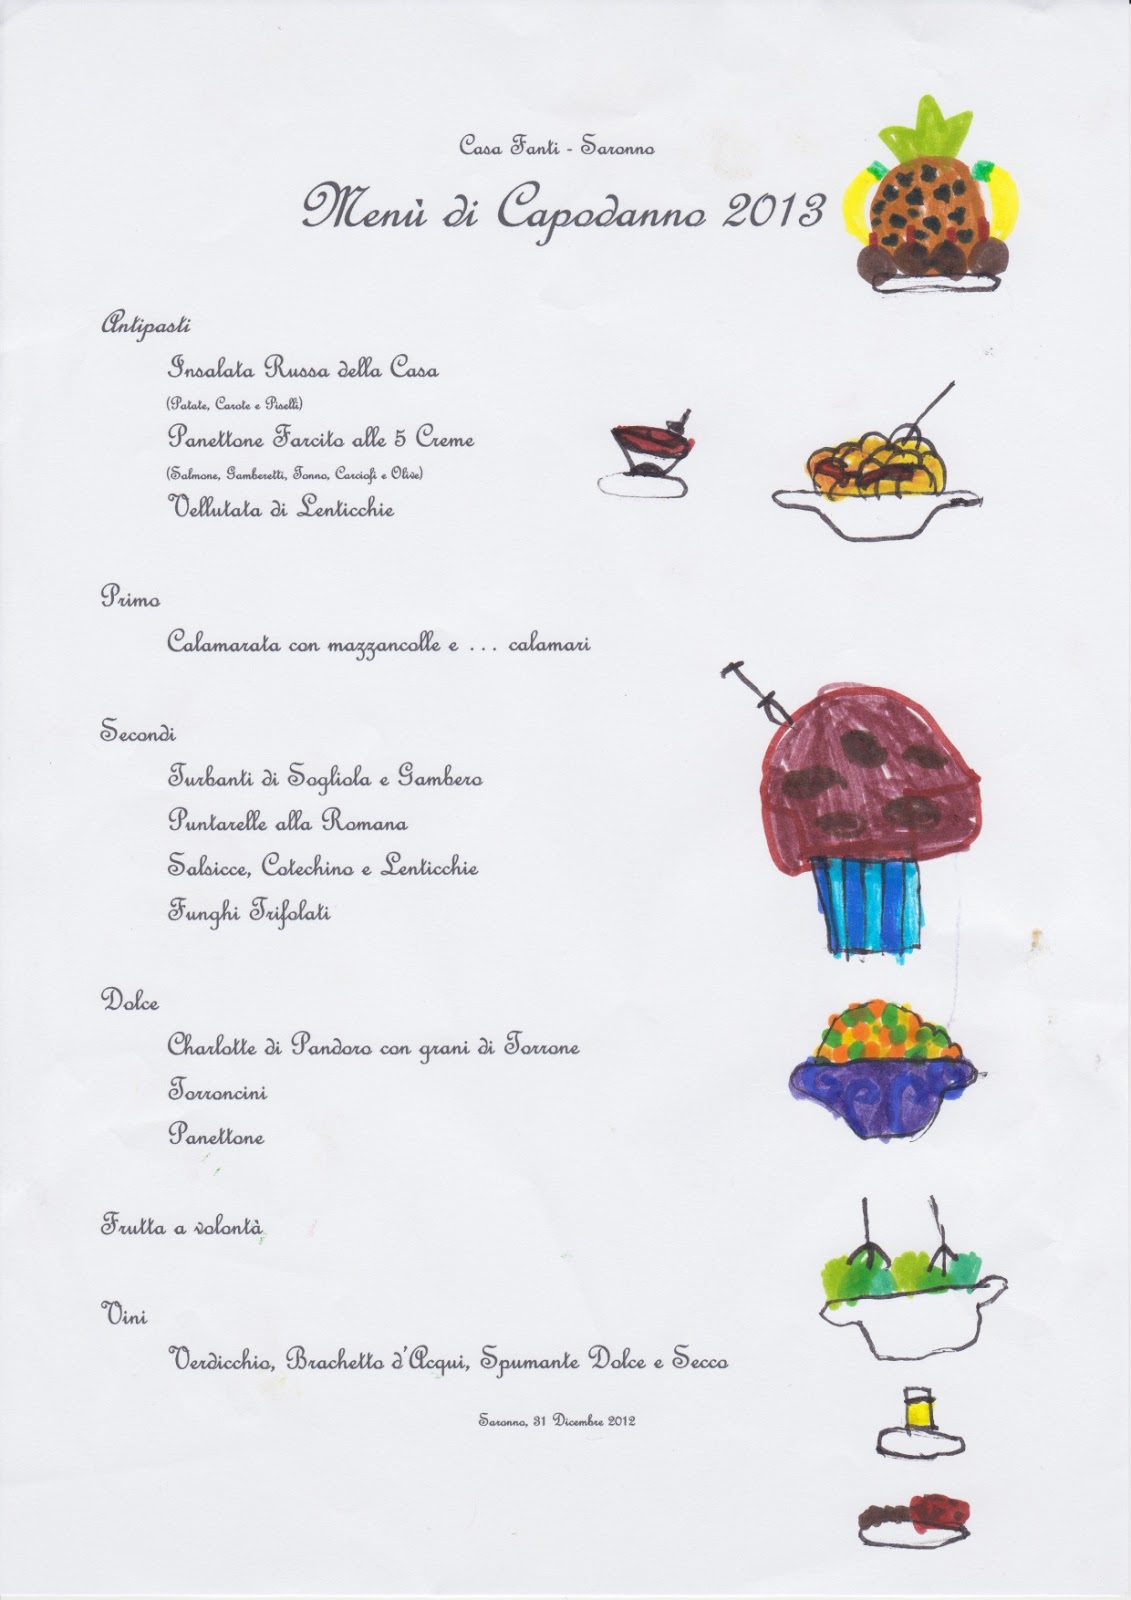 Casa Fanti - Saronno
Menù di Capodanno 2013
Antipasti
Insalata Russa della Casa
(Patate, Carote e Piselli)
Panettone Farcito alle 5 Creme
(Salmone, Gamberetti, Tonno, Carciofi e Olive)
Vellutata di Lenticchie
Primo
Calamarata con mazzancolle e ... calamari
Secondi
Turbanti di Sogliola e Gambero
Puntarelle alla Romana
Salsicce, Cotechino e Lenticchie
Funghi Trifolati
Dolce
Charlotte di Pandoro con grani di Torrone
Torroncini
Panettone
Frutta a volontà
Vini
Verdicchio, Brachetto d'Acqui, Spumante Dolce e Secco
Saronno, 31 Dicembre 2012